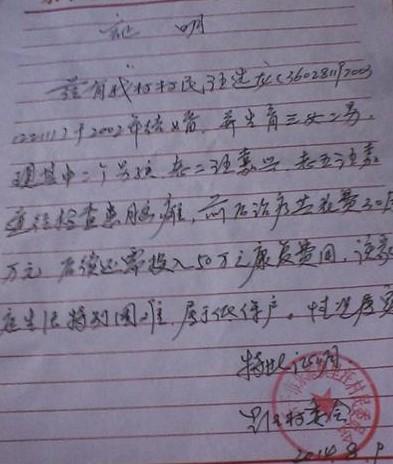 证明
兹有我村村民汪选龙(36028119
于2002年结婚,并生育三女二男,
现其中二个男孩,老二汪嘉兴,老五汪嘉
进经检查患脑瘫,前后治疗共花费30
万元,后续还需投入50万元康复费用,该家
庭生活特别困难,属于低保户。情况属实
特此证明
村委会
2014.8.9